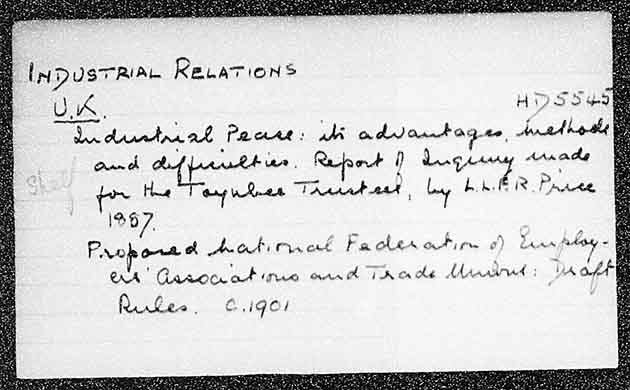 INDUSTRIAL RELATIONS
U.K.
HD5545
Industrial Peace: its advantages, methods
and difficulties. Report of Inquiry made
Shelf
for the Toynbee Trustees, by L.L.F.R. Price
1887.
Proposed National Federation of Employ-
ers' Associations and Trade Unions: Draft
Rules. C.1901